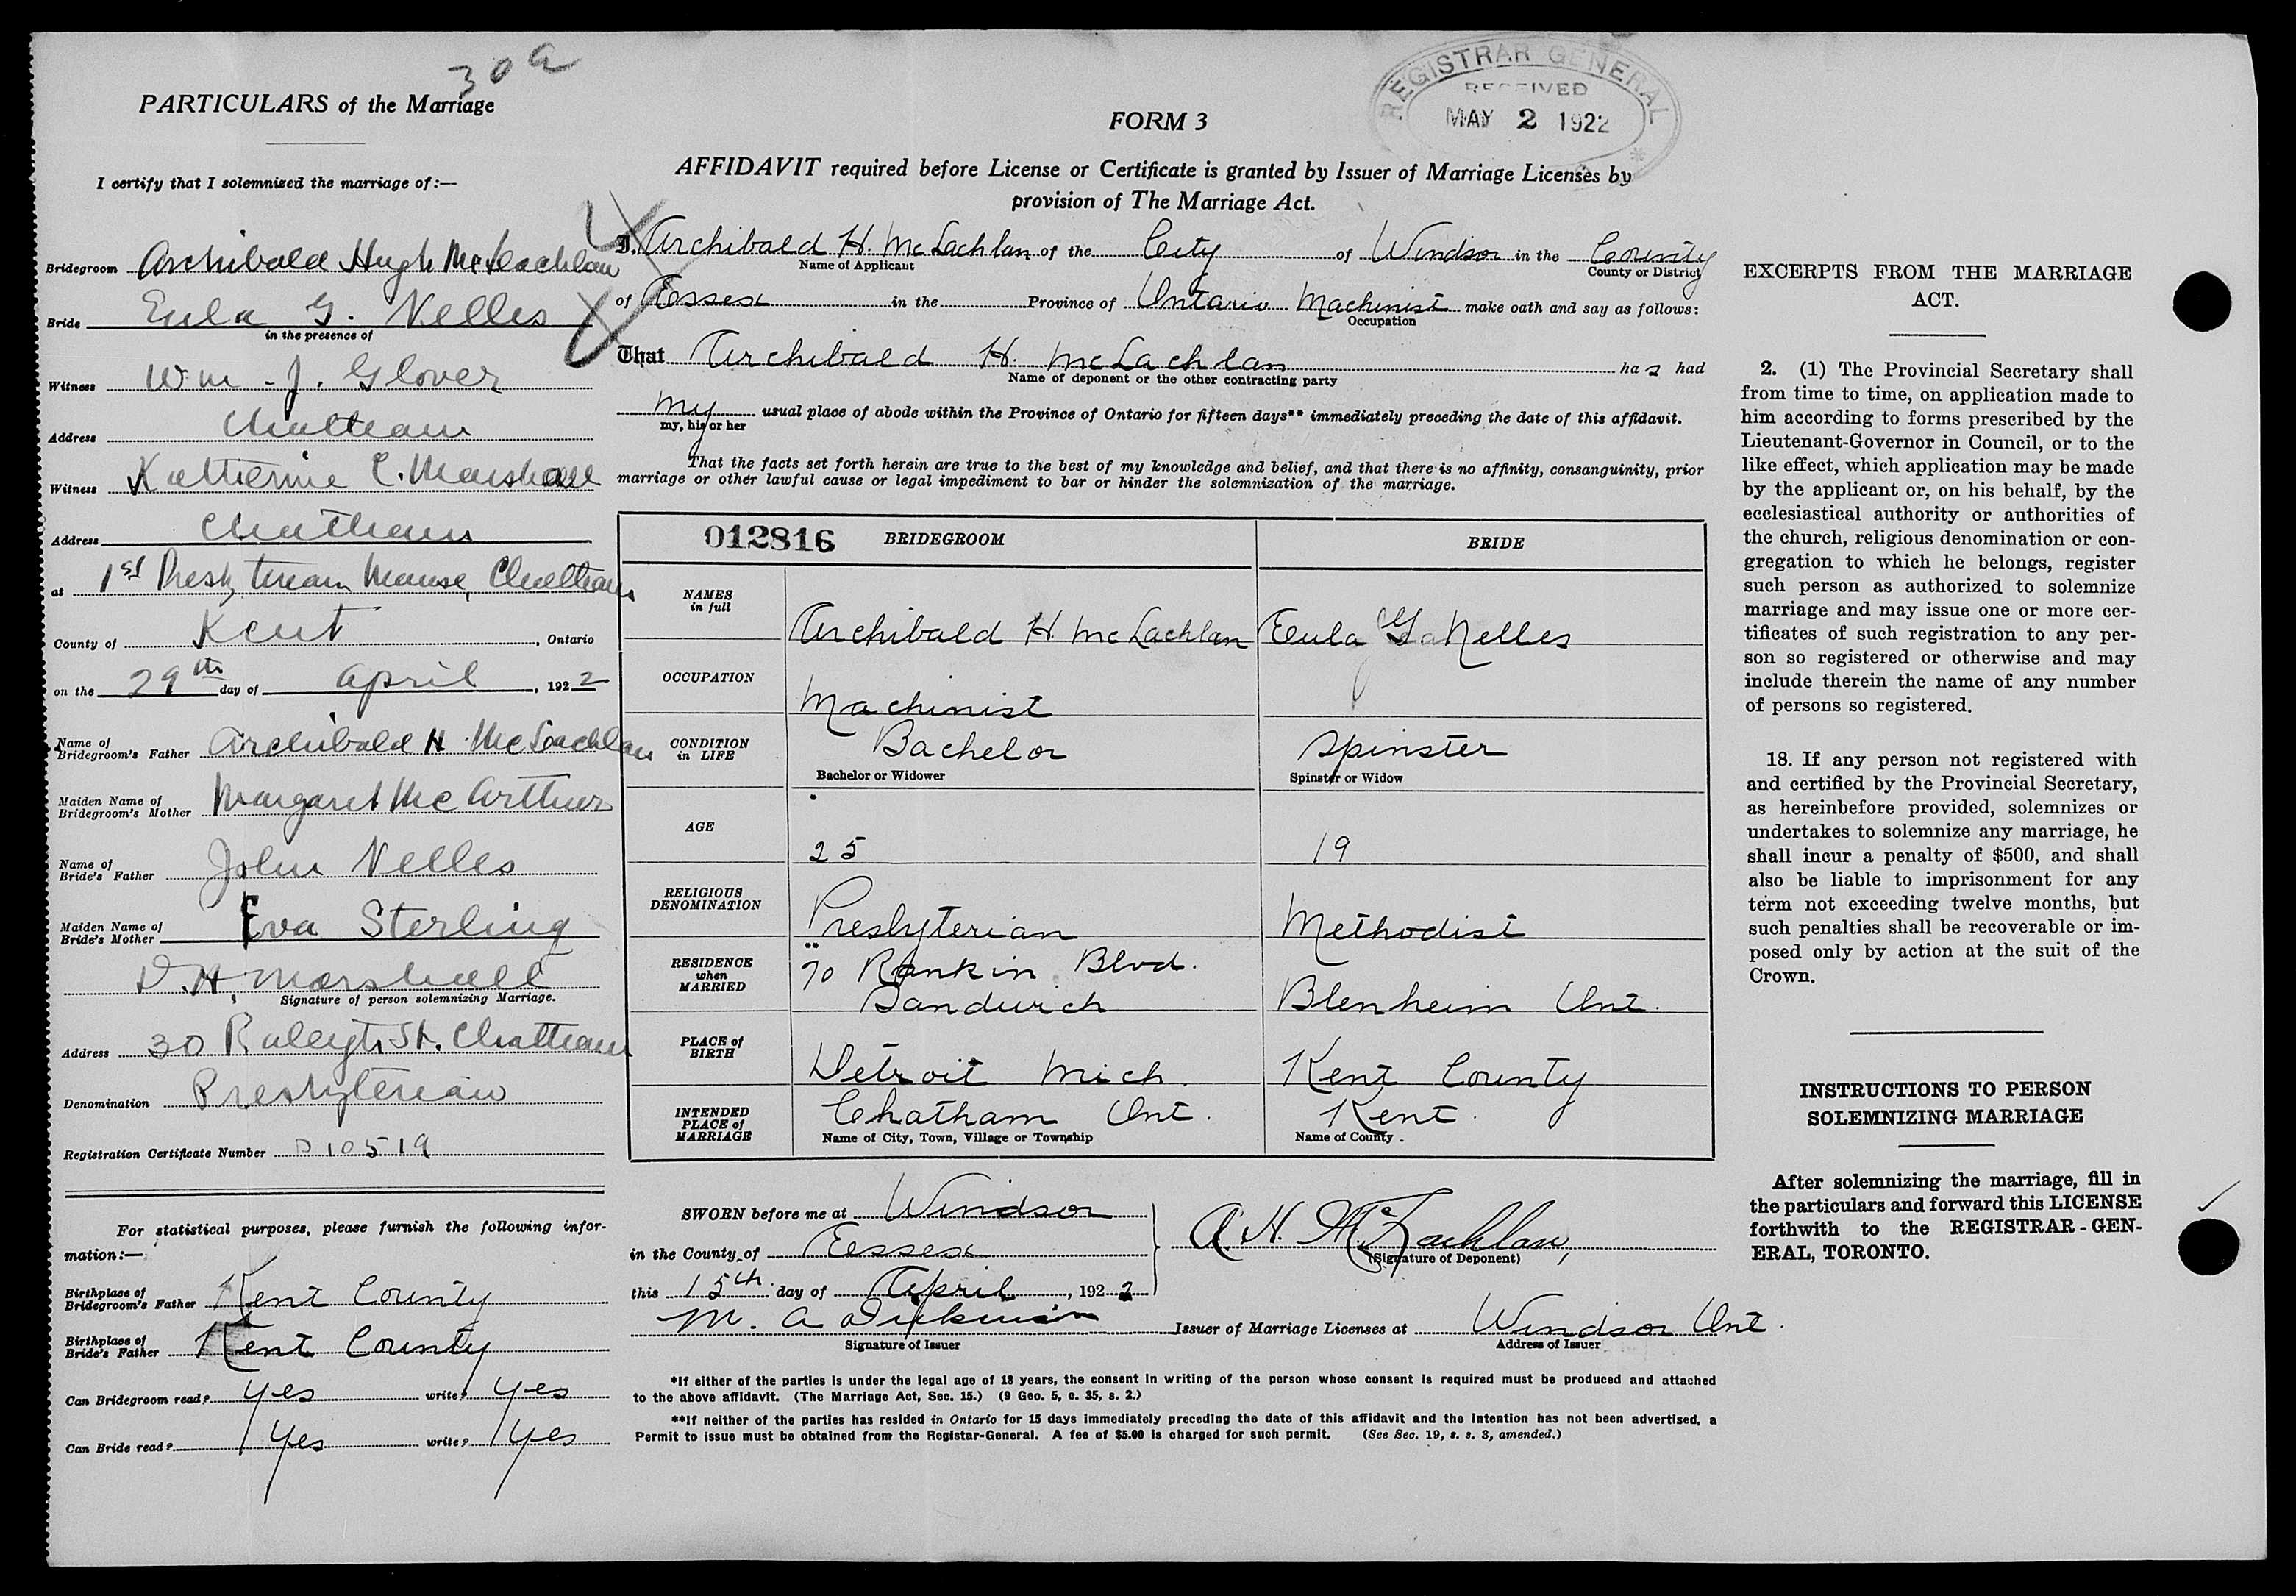 30a
PARTICULARS of the Marriage
I certify that I solemnized the marriage of:—
Bridegroom Archibald Hugh McLachlan
Bride Eula G. Nelles
in the presence of
Witness Wm. J. Glover
Address Chatham
Witness Katherine C. Marshall
Address Chatham
at 1st Presbyterian Manse, Chatham
County of Kent, Ontario
on the 29th day of April, 1922
Name of Bridegroom's Father Archibald H McLachlan
Maiden Name of Bridegroom's Mother Margaret McArthur
Name of Bride's Father John Nelles
Maiden Name of Bride's Mother Eva Sterling
D. H. Marshall
Signature of person solemnizing Marriage.
Address 30 Raleigh St. Chatham
Denomination Presbyterian
Registration Certificate Number 10519
For statistical purposes, please furnish the following infor-
mation:—
Birthplace of Bridegroom's Father Kent County
Birthplace of Bride's Father Kent County
Can Bridegroom read? Yes write? Yes
Can Bride read? Yes write? Yes
REGISTRAR GENERAL
RECEIVED
MAY 2 1922
FORM 3
AFFIDAVIT required before License or Certificate is granted by Issuer of Marriage Licenses by
provision of The Marriage Act.
I, Archibald H. McLachlan of the City of Windsor in the County
Name of Applicant County or District
of Essex in the Province of Ontario Machinist make oath and say as follows:
Occupation
That Archibald H. McLachlan has had
Name of deponent or the other contracting party
my usual place of abode within the Province of Ontario for fifteen days** immediately preceding the date of this affidavit.
my, his or her
That the facts set forth herein are true to the best of my knowledge and belief, and that there is no affinity, consanguinity, prior
marriage or other lawful cause or legal impediment to bar or hinder the solemnization of the marriage.
012816 BRIDEGROOM BRIDE
NAMES in full Archibald H McLachlan Eula G Nelles
OCCUPATION Machinist
CONDITION in LIFE Bachelor Spinster
Bachelor or Widower Spinster or Widow
AGE 25 19
RELIGIOUS DENOMINATION Presbyterian Methodist
RESIDENCE when MARRIED 70 Rankin Blvd. Sandwich Blenheim Ont.
PLACE of BIRTH Detroit Mich. Kent County
INTENDED PLACE of MARRIAGE Chatham Ont. Kent.
Name of City, Town, Village or Township Name of County.
SWORN before me at Windsor
in the County of Essex
this 15th day of April, 1922
A. H. McLachlan,
(Signature of Deponent)
M. A. Issuer of Marriage Licenses at Windsor Ont.
Signature of Issuer Address of Issuer
*If either of the parties is under the legal age of 18 years, the consent in writing of the person whose consent is required must be produced and attached
to the above affidavit. (The Marriage Act, Sec. 15.) (9 Geo. 5, c. 35, s. 2.)
**If neither of the parties has resided in Ontario for 15 days immediately preceding the date of this affidavit and the intention has not been advertised, a
Permit to issue must be obtained from the Registar-General. A fee of $5.00 is charged for such permit. (See Sec. 19, s. s. 3, amended.)
EXCERPTS FROM THE MARRIAGE
ACT.
2. (1) The Provincial Secretary shall
from time to time, on application made to
him according to forms prescribed by the
Lieutenant-Governor in Council, or to the
like effect, which application may be made
by the applicant or, on his behalf, by the
ecclesiastical authority or authorities of
the church, religious denomination or con-
gregation to which he belongs, register
such person as authorized to solemnize
marriage and may issue one or more cer-
tificates of such registration to any per-
son so registered or otherwise and may
include therein the name of any number
of persons so registered.
18. If any person not registered with
and certified by the Provincial Secretary,
as hereinbefore provided, solemnizes or
undertakes to solemnize any marriage, he
shall incur a penalty of $500, and shall
also be liable to imprisonment for any
term not exceeding twelve months, but
such penalties shall be recoverable or im-
posed only by action at the suit of the
Crown.
INSTRUCTIONS TO PERSON
SOLEMNIZING MARRIAGE
After solemnizing the marriage, fill in
the particulars and forward this LICENSE
forthwith to the REGISTRAR-GEN-
ERAL, TORONTO.